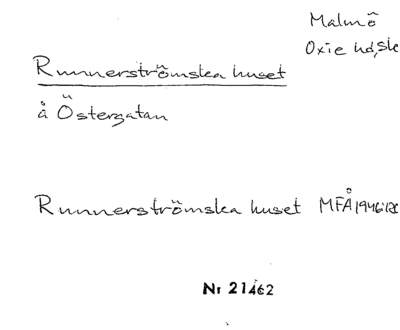 Malmö
Oxie hd, Sk
Runnerströmska huset
å Östergatan
Runnerströmska huset MFÅ 1946:
Nr 21462